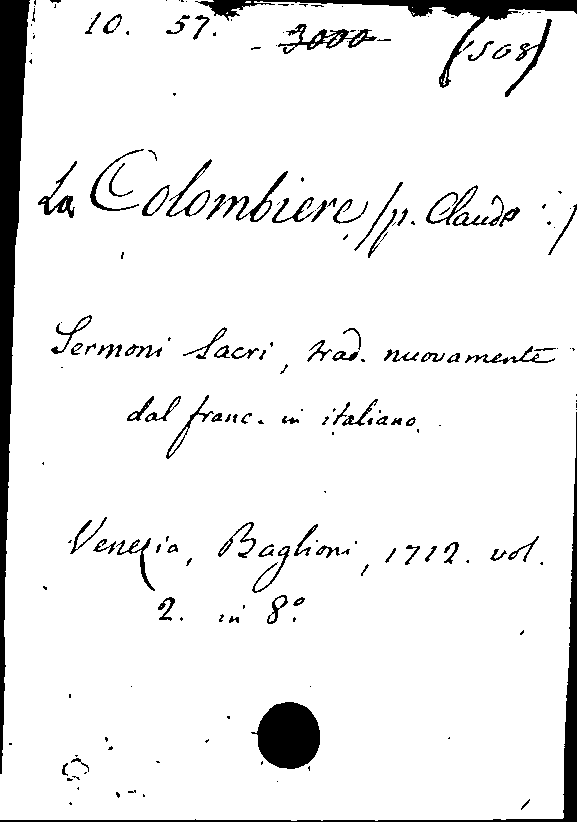 10. 57. - 3000 - (508)
La Colombiere, /p. Claude :/
Sermoni sacri, trad. nuovamente
dal franc. in italiano.
Venezia, Baglioni, 1712. vol.
2. in 8.º